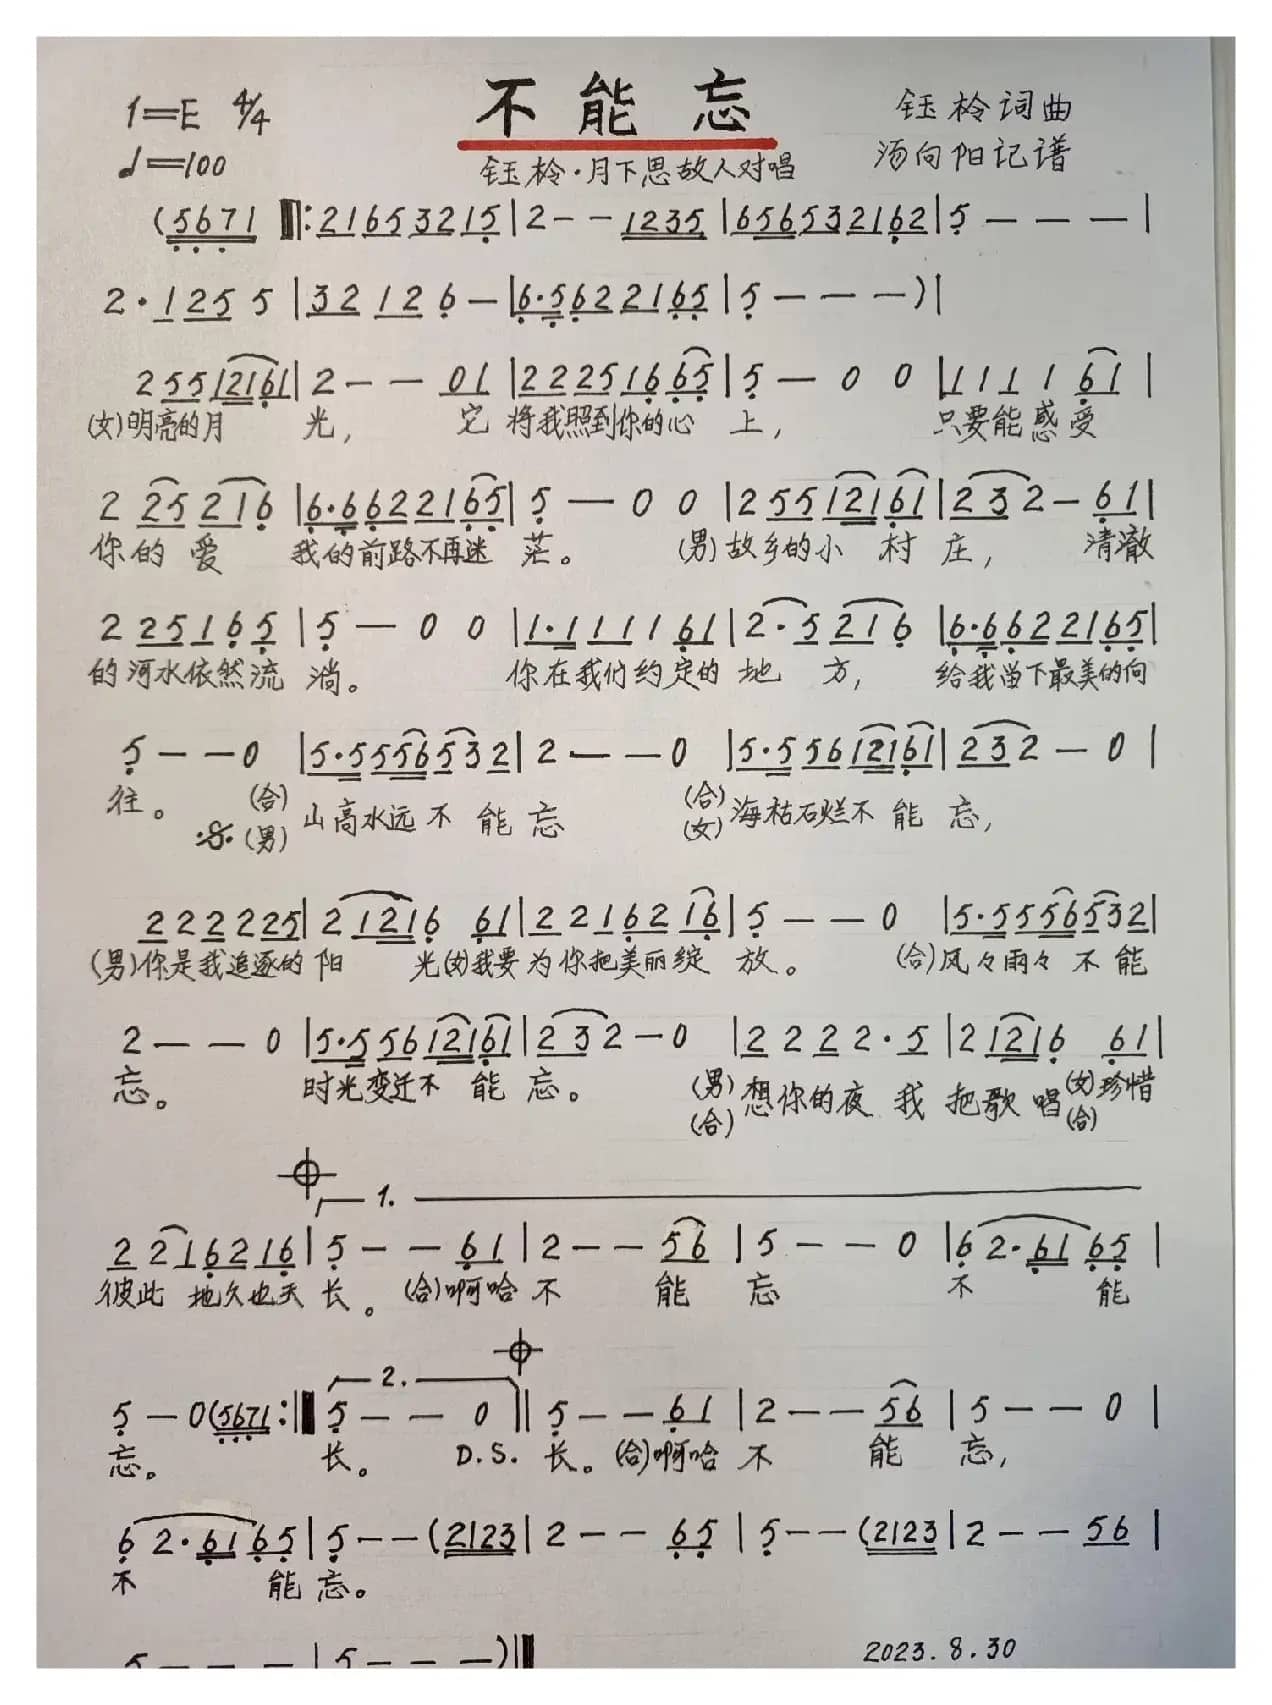 不能忘
1=E 4/4
钰柃词曲
♩=100
汤向阳记谱
钰柃·月下思故人对唱
(5671 ‖: 21653215 | 2 - - 1235 | 656532162 | 5 - - - |
2·125 5 | 32 12 6 - | 6·562 2165 | 5 - - - ) |
2 55 12161 | 2 - - 01 | 22251665 | 5 - 0 0 | 11 1 1 61 |
(女)明亮的月 光, 它 将我照到你的心 上, 只要能感受
2 25 216 | 6·6622165 | 5 - 0 0 | 2 55 12161 | 232 - 61 |
你的 爱 我的前路不再迷 茫。 (男)故乡的小 村 庄, 清澈
2 25 1 6 5 | 5 - 0 0 | 1·1 11 1 61 | 2·5 216 | 6·6622165 |
的河水依然流 淌。 你在我们约定的 地 方, 给我留下最美的向
5 - - 0 | 5·5 556532 | 2 - - 0 | 5·5 5612161 | 232 - 0 |
往。 (合) (男) 山高水远 不 能 忘 (合) (女) 海枯石烂不 能 忘,
2 2 2 2 25 | 2 1216 61 | 2 2 16216 | 5 - - 0 | 5·5 556532 |
(男)你是我追逐的 阳 光(女)我要 为你把美丽绽 放。 (合)风々雨々 不 能
2 - - 0 | 5·5 5612161 | 232 - 0 | 2 2 2 2·5 | 2 1216 61 |
忘。 时光变迁不 能 忘。 (男) (合) 想你的夜 我 把歌 唱(女) (合) 珍惜
1.
2 2 16216 | 5 - - 61 | 2 - - 56 | 5 - - 0 | 6 2·61 65 |
彼此 地久也天 长。 (合)啊哈 不 能 忘 不 能
2.
5 - 0(5671 :‖ 5 - - 0 ‖ 5 - - 61 | 2 - - 56 | 5 - - 0 |
忘。 长。 D.S. 长。 (合)啊哈 不 能 忘,
6 2·61 65 | 5 - - (2123 | 2 - - 65 | 5 - - (2123 | 2 - - 56 |
不 能 忘。
5 - - - | 5 - - - )‖
2023.8.30